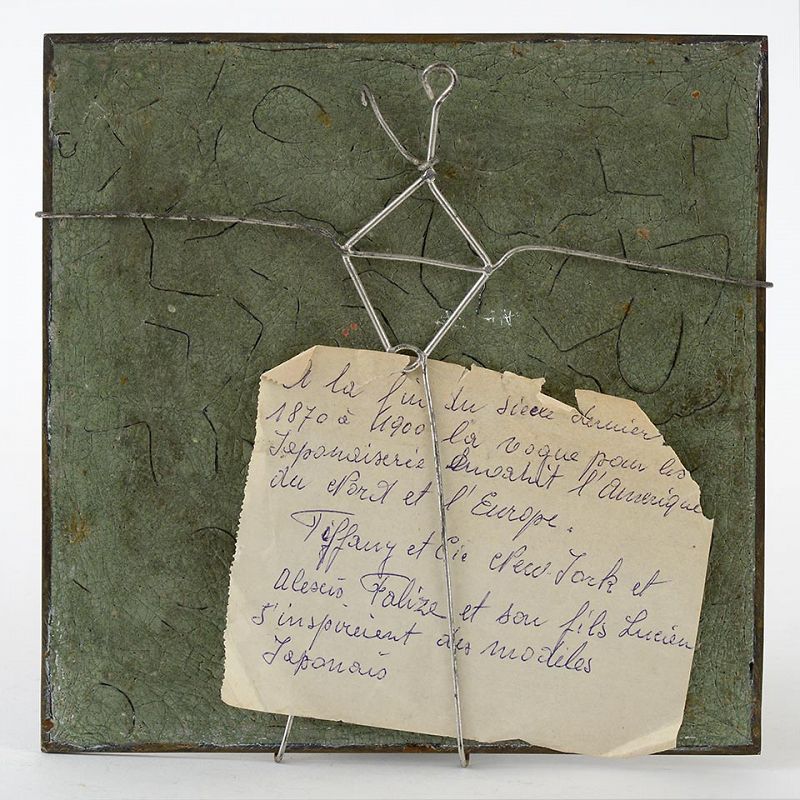 A la fin du siecle dernier
1870 à 1900 la vogue pour les
Japonaiserie envahit l'Amerique
du Nord et l'Europe.
Tiffany et Cie New-York et
Alexis Falize et son fils Lucien
S'inspirèient des modèles
Japonais